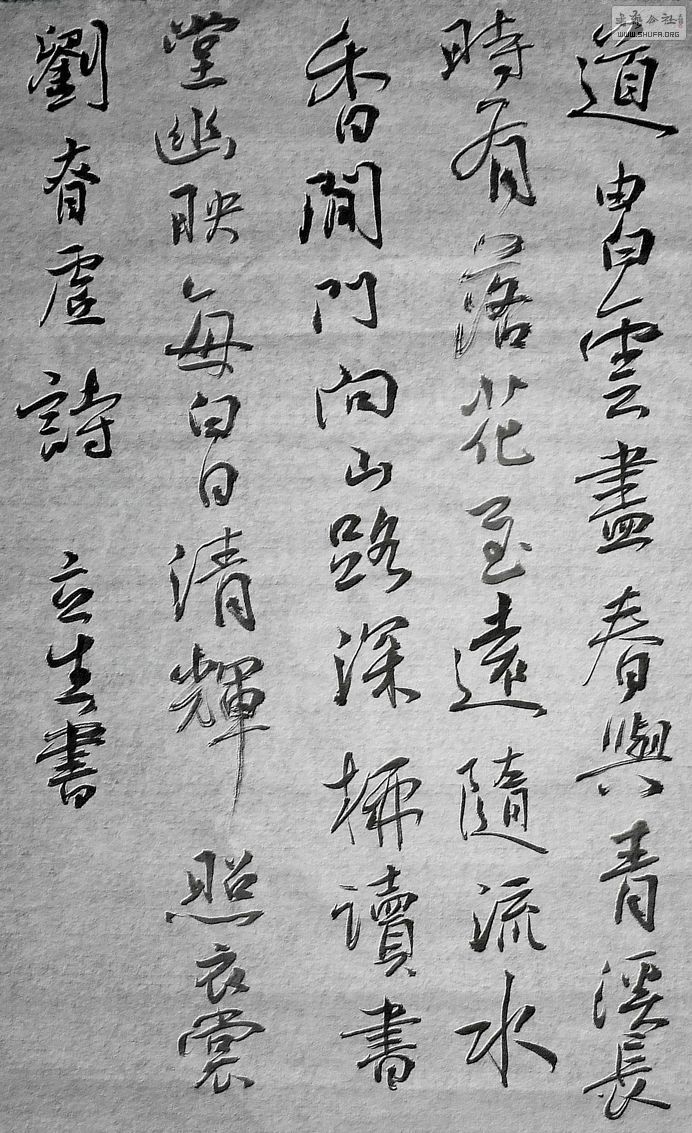 道由白雲盡春與青溪長
時有落花至遠隨流水
香閒門向山路深柳讀書
堂幽映每白日清輝照衣裳
劉眘虛詩 立生書
WWW.SHUFA.ORG